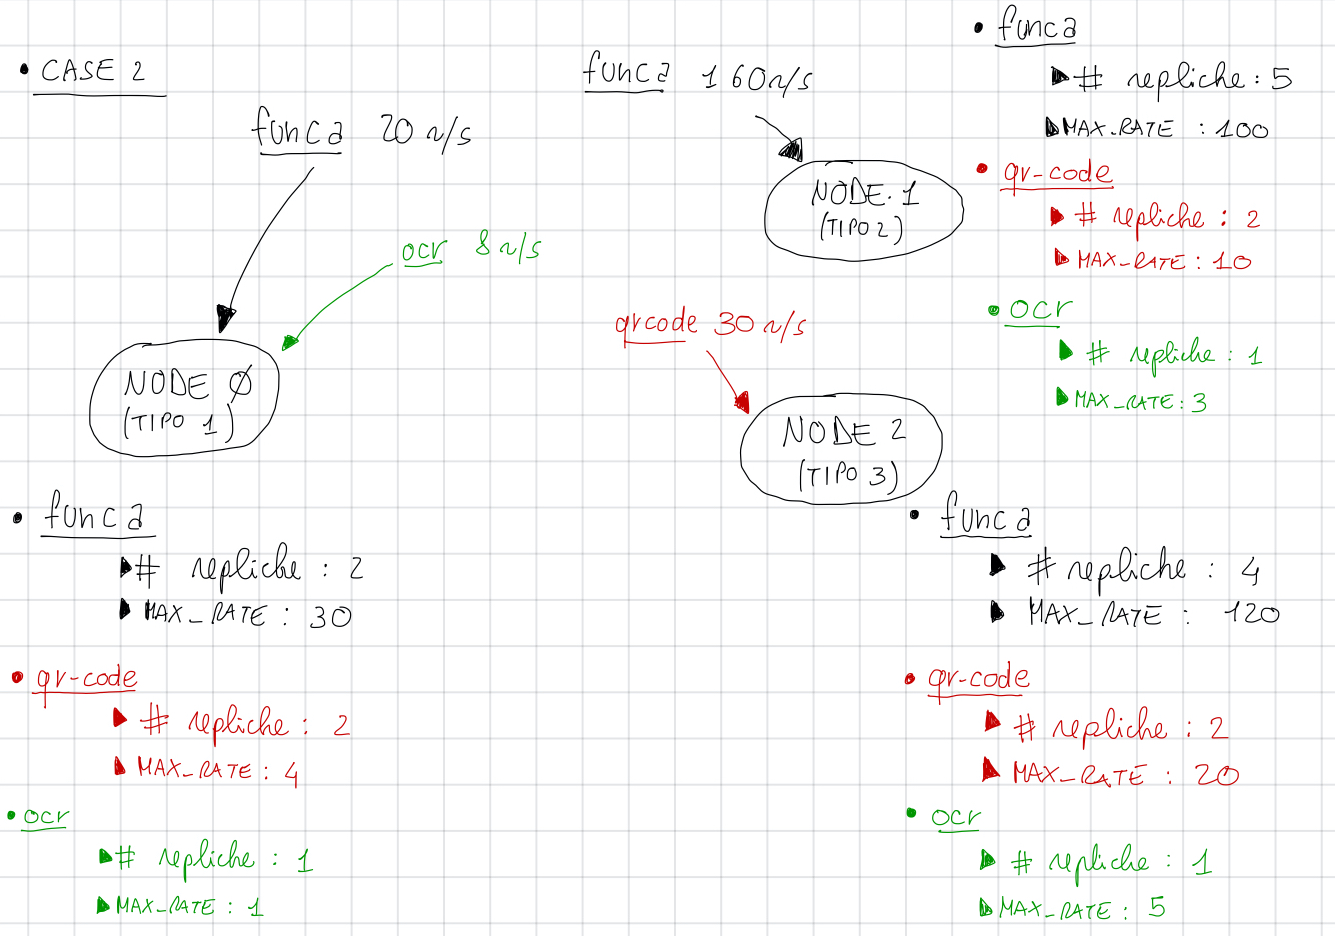 • CASE 2
funca 20 r/s
ocr 8 r/s
NODE Ø
(TIPO 1)
• funca
# repliche : 2
MAX_RATE : 30
• qr-code
# repliche : 2
MAX_RATE : 4
• ocr
# repliche : 1
MAX_RATE : 1
funca 160 r/s
NODE 1
(TIPO 2)
• funca
# repliche : 5
MAX_RATE : 100
• qr-code
# repliche : 2
MAX_RATE : 10
• ocr
# repliche : 1
MAX_RATE : 3
qrcode 30 r/s
NODE 2
(TIPO 3)
• funca
# repliche : 4
MAX_RATE : 120
• qr-code
# repliche : 2
MAX_RATE : 20
• ocr
# repliche : 1
MAX_RATE : 5